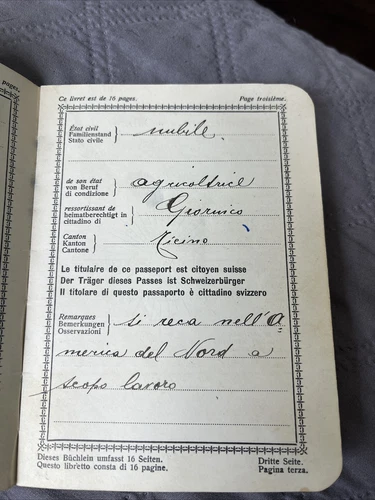 pages.
Ce livret est de 16 pages. Page troisième.
État civil
Familienstand
Stato civile
nubile.
de son état
von Beruf
di condizione
agricoltrice
ressortissant de
heimatberechtigt in
cittadino di
Giornico
Canton
Kanton
Cantone
Ticino
Le titulaire de ce passeport est citoyen suisse
Der Träger dieses Passes ist Schweizerbürger
Il titolare di questo passaporto è cittadino svizzero
Remarques
Bemerkungen
Osservazioni
si reca nell'A
merica del Nord a
scopo lavoro
Dieses Büchlein umfasst 16 Seiten. Dritte Seite.
Questo libretto consta di 16 pagine. Pagina terza.